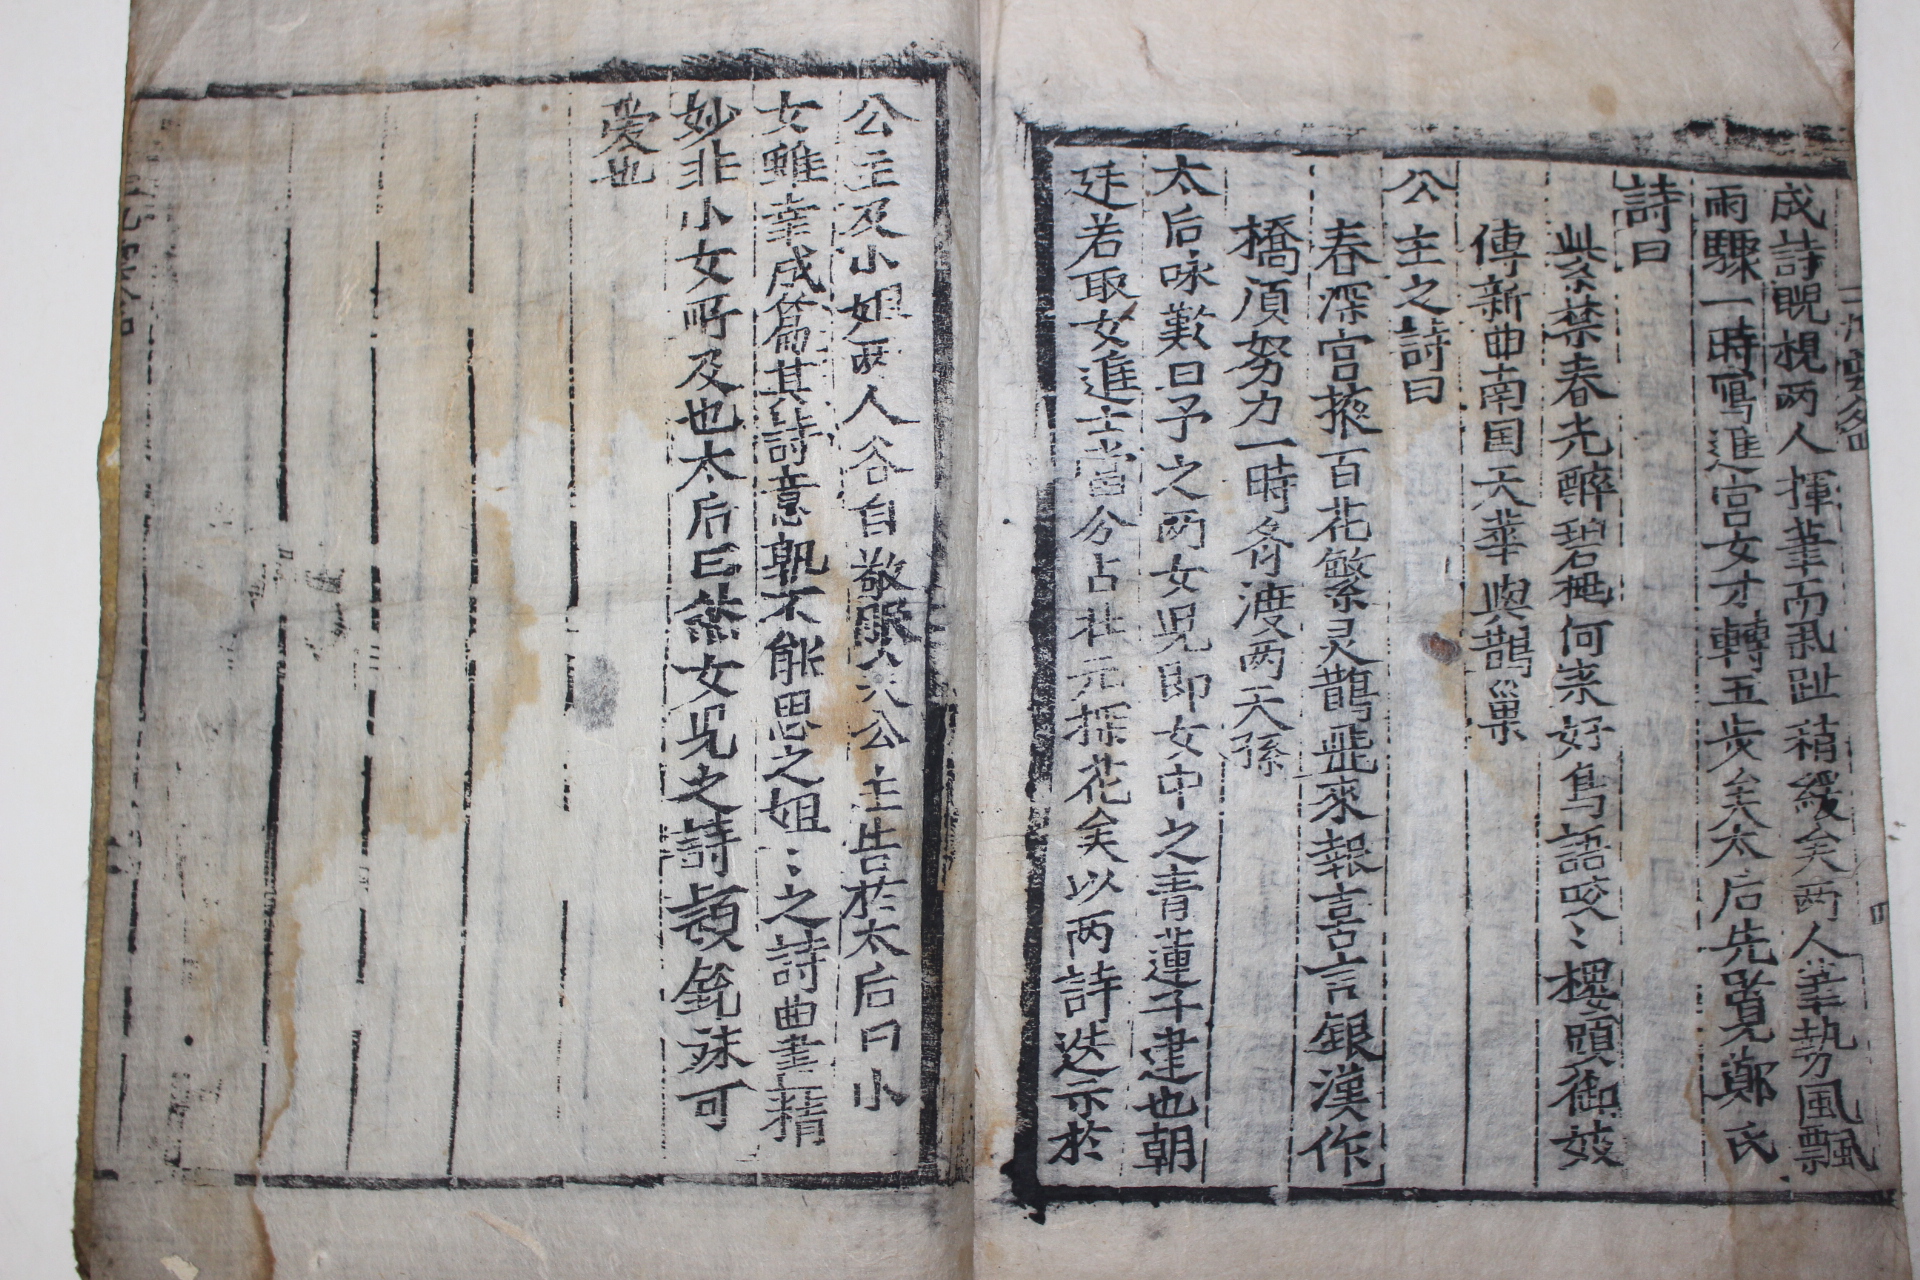 成詩睨視两人揮筆而虱趾稍緩矣两人筆勢風飄
雨驟一時寫進宮女才轉五步矣太后先覽鄭氏
詩曰
紫禁春光醉碧桃何来好鳥語咬〻樓頭御妓
傳新曲南国天華與鵲巢
公主之詩曰
春深宮掖百花繁灵鵲飛來報喜言銀漢作
橋湏努力一時齐渡两天孫
太后咏歎曰予之两女児即女中之青蓮子建也朝
廷若取女進士當分占壮元探花矣以两詩迭示於
公主及小姐两人各自敬服矣公主告於太后曰小
女雖幸成篇其詩意孰不能思之姐〻之詩曲盡精
妙非小女所及也太后曰然女児之詩頴銳殊可
愛也